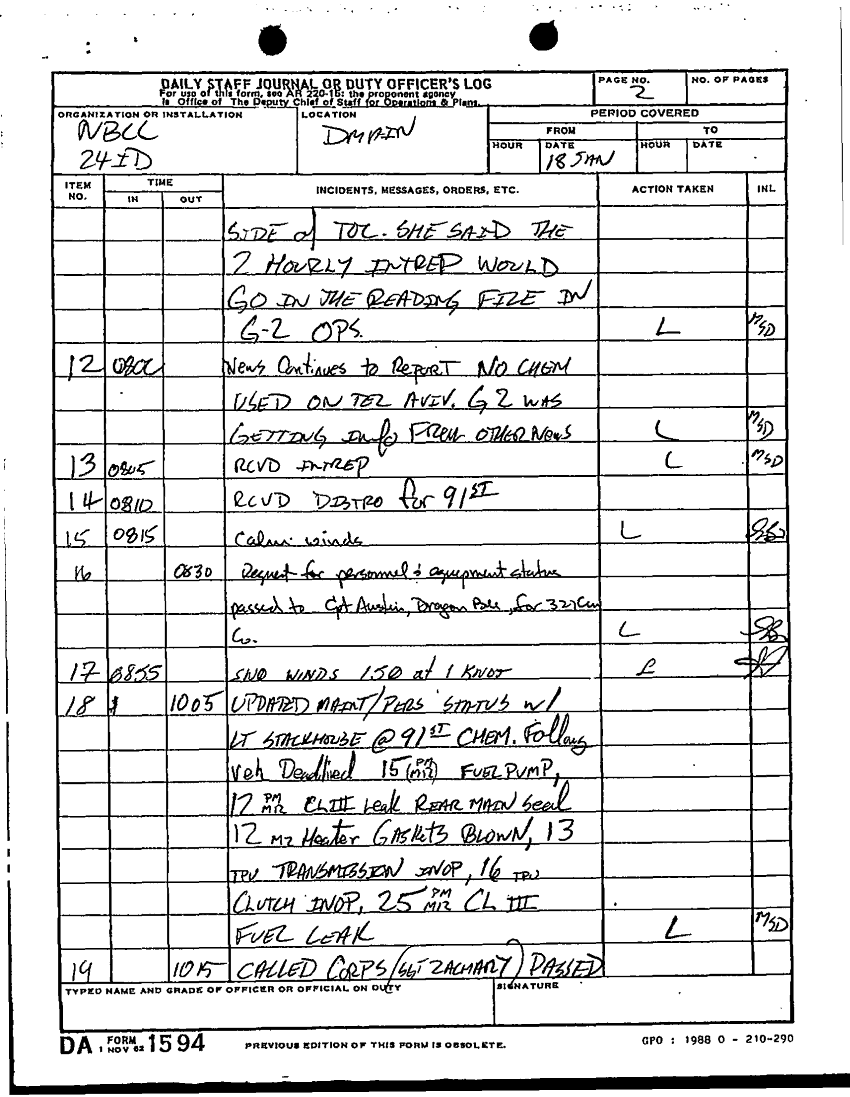 DAILY STAFF JOURNAL OR DUTY OFFICER'S LOG
For use of this form, see AR 220-15; the proponent agency
is Office of The Deputy Chief of Staff for Operations & Plans.
PAGE NO.
2
NO. OF PAGES
ORGANIZATION OR INSTALLATION
NBCC
24ID
LOCATION
DMAIN
PERIOD COVERED
FROM
TO
HOUR
DATE
18 JAN
HOUR
DATE
ITEM NO.
TIME
IN
OUT
INCIDENTS, MESSAGES, ORDERS, ETC.
ACTION TAKEN
INL
SIDE of TOC. SHE SAID THE
2 HOURLY INTREP WOULD
GO IN THE READING FILE IN
G-2 OPS. L MSD
12 0800 News Continues to Report NO CHEM
USED ON TEL AVIV. G2 WAS
GETTING Info FROM OTHER NEWS L MSD
13 0805 RCVD INTREP L MSD
14 0810 RCVD DISTRO for 91ST
15 0815 Calm winds L
16 0830 Request for personnel & equipment status
passed to Cpt Austin, Dragon Base, for 327 Cm
Co. L
17 0855 SND WINDS 150 at 1 KNOT L
18 1005 UPDATED MAINT/PERS STATUS W/
LT STACKHOUSE @ 91ST CHEM. Following
Veh Deadlined 15 (PM M12) FUEL PUMP,
17 PM M12 CL III Leak REAR MAIN Seal
12 M2 Heater GASKETS BLOWN, 13
TPU TRANSMISSION INOP, 16 TPU
CLUTCH INOP, 25 PM M12 CL III
FUEL LEAK L MSD
19 1015 CALLED CORPS (SGT ZACHARY) PASSED
TYPED NAME AND GRADE OF OFFICER OR OFFICIAL ON DUTY
SIGNATURE
DA FORM 1 NOV 62 1594
PREVIOUS EDITION OF THIS FORM IS OBSOLETE.
GPO : 1988 O - 210-290